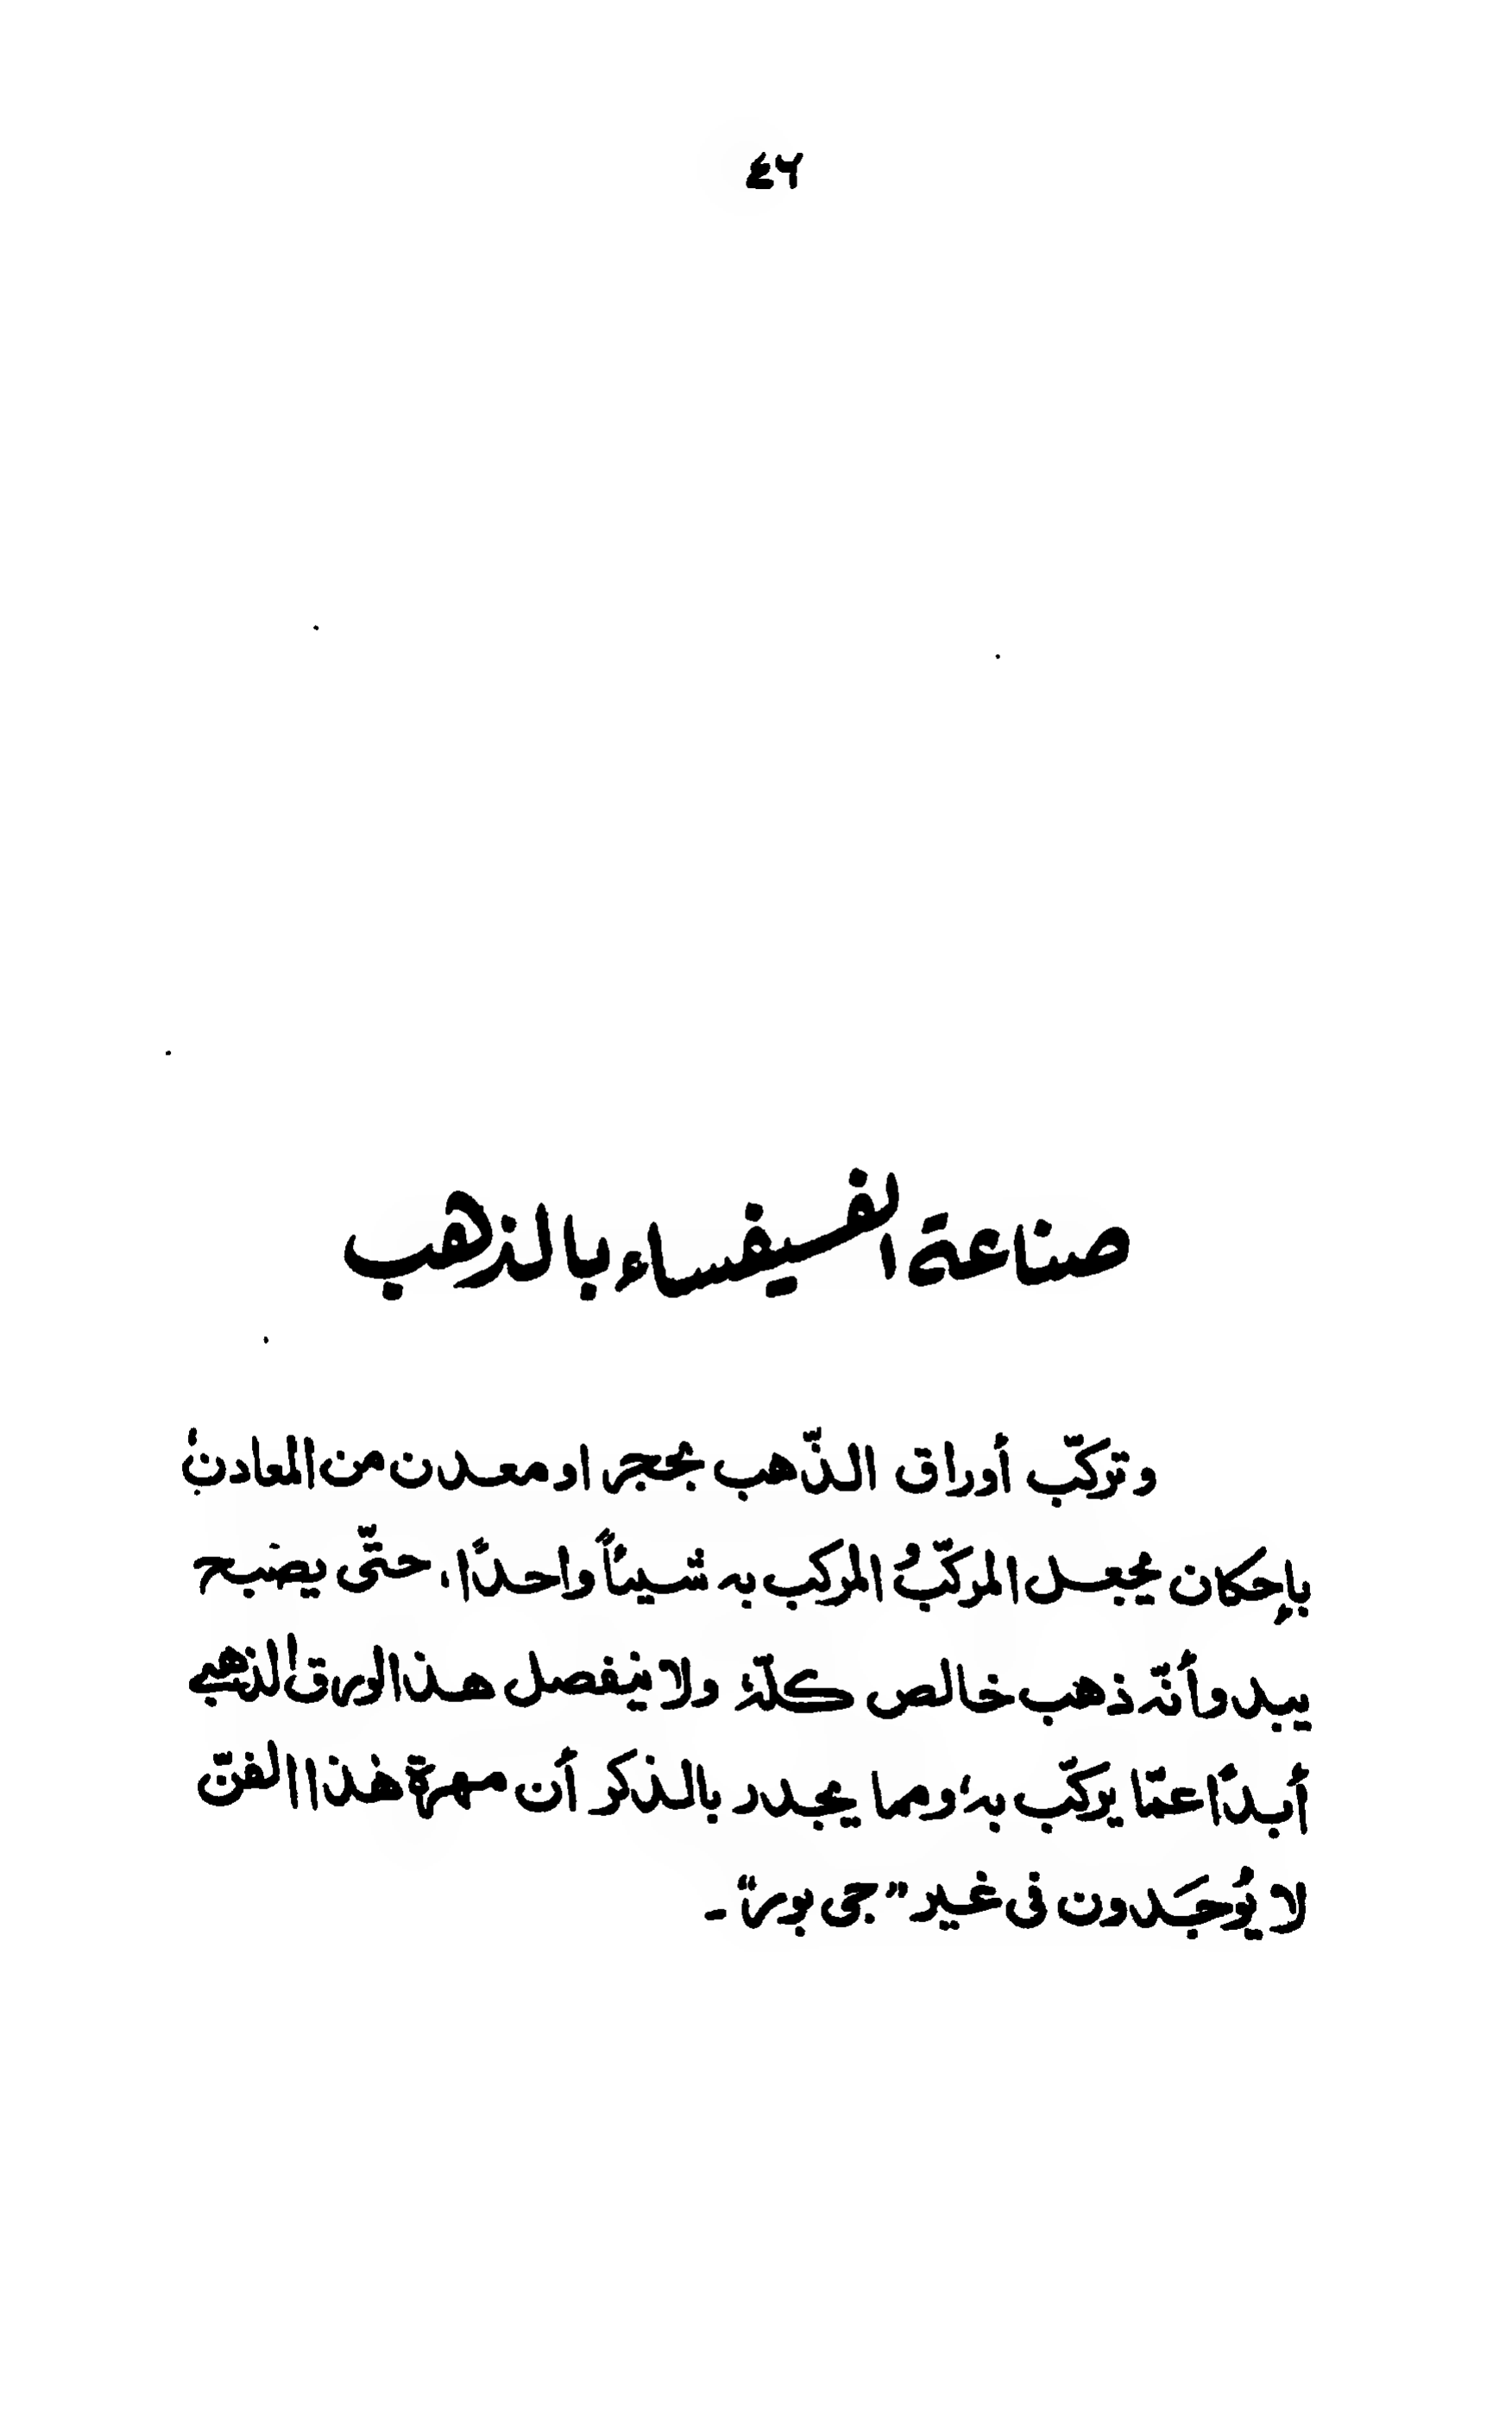 ٤٦
صناعة الفسيفساء بالذهب
وتركّب أوراق الذّهب بحجر او معدن من المعادن
بإحكان يجعل المركّبُ المركب به شيئاً واحدًا، حتّى يصبح
يبدو أنّه ذهب خالص كلّهٔ ولا ينفصل هذا الورق الذهبي
أبدًا عمّا يركّب به، ومما يجدر بالذكر أن مهرة هذا الفنّ
لا يُوجَدون فى غير "جى بور" ۔